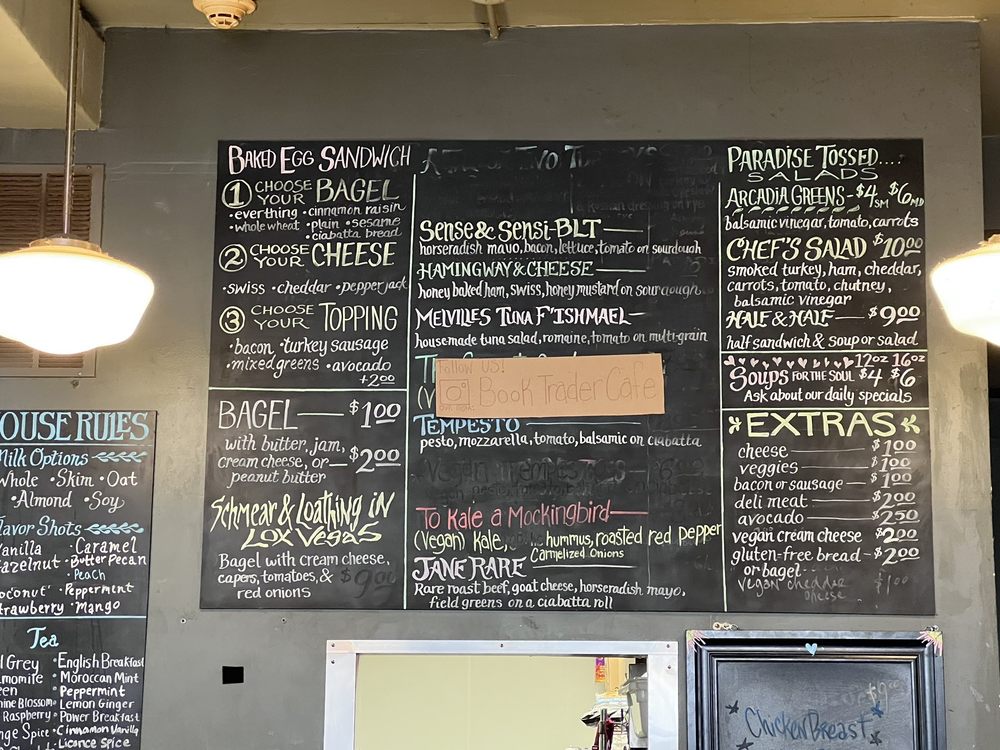 BAKED EGG SANDWICH
1 CHOOSE YOUR BAGEL
•everthing •cinnamon raisin
•whole wheat •plain •sesame
•ciabatta bread
2 CHOOSE YOUR CHEESE
•swiss •cheddar •pepperjack
3 CHOOSE YOUR TOPPING
•bacon •turkey sausage
•mixed greens •avocado
+2.00
BAGEL $1.00
with butter, jam,
cream cheese, or $2.00
peanut butter
Schmear & Loathing in
LOX VEGAS
Bagel with cream cheese,
capers, tomatoes, & $9.00
red onions
Sense & Sensi-BLT
horseradish mayo, bacon, lettuce, tomato on sourdough
HAMINGWAY & CHEESE
honey baked ham, swiss, honey mustard on sourdough
MELVILLES TUNA F'ISHMAEL
housemade tuna salad, romaine, tomato on multi-grain
Follow us!
Book Trader Cafe
TEMPESTO
pesto, mozzarella, tomato, balsamic on ciabatta
To Kale a Mockingbird
(Vegan) Kale, hummus, roasted red pepper
Carmelized Onions
JANE RARE
Rare roast beef, goat cheese, horseradish mayo,
field greens on a ciabatta roll
PARADISE TOSSED....
SALADS
ARCADIA GREENS - $4 SM $6 MD
balsamic vinegar, tomato, carrots
CHEF'S SALAD $10.00
smoked turkey, ham, cheddar,
carrots, tomato, chutney,
balsamic vinegar
HALF & HALF $9.00
half sandwich & soup or salad
12oz 16oz
Soups FOR THE SOUL $4 $6
Ask about our daily specials
EXTRAS
cheese $1.00
veggies $1.00
bacon or sausage $1.00
deli meat $2.00
avocado $2.50
vegan cream cheese $2.00
gluten-free bread $2.00
or bagel
vegan cheddar $1.00
cheese
OUSE RULES
Milk Options
Whole •Skim •Oat
•Almond •Soy
lavor Shots
Vanilla •Caramel
Hazelnut •Butter Pecan
•Peach
oconut •Peppermint
trawberry •Mango
Tea
l Grey •English Breakfast
momile •Moroccan Mint
een •Peppermint
ine Blossom •Lemon Ginger
Raspberry •Power Breakfast
nge Spice •Cinnamon Vanilla
•Licorice Spice
Chicken Breast